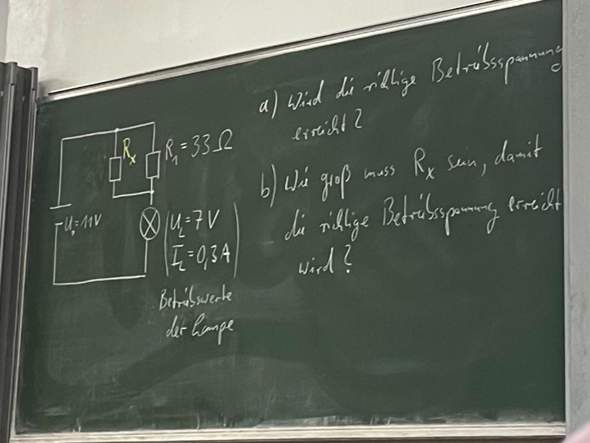 a) Wird die richtige Betriebsspannung
erreicht?
Rx
R₁ = 33 Ω
b) Wie groß muss Rx sein, damit
die richtige Betriebsspannung erreicht
wird?
U₀ = 11V
(U_L = 7V
I_L = 0,3A)
Betriebswerte
der Lampe